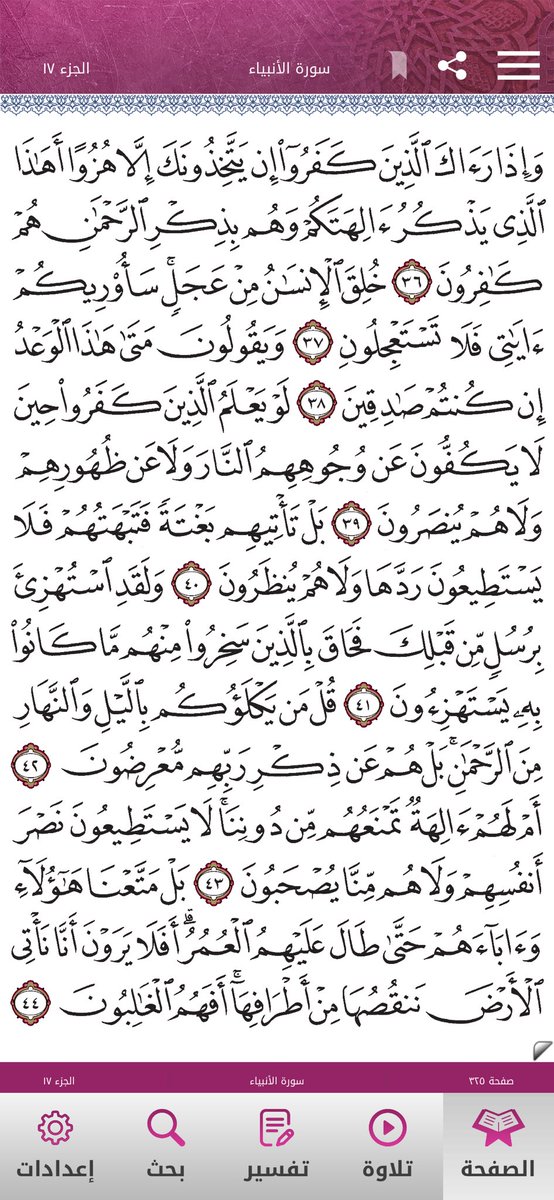 الجزء ١٧ سورة الأنبياء
وَإِذَا رَءَاكَ ٱلَّذِينَ كَفَرُوٓا۟ إِن يَتَّخِذُونَكَ إِلَّا هُزُوًا أَهَـٰذَا
ٱلَّذِى يَذْكُرُ ءَالِهَتَكُمْ وَهُم بِذِكْرِ ٱلرَّحْمَـٰنِ هُمْ
كَـٰفِرُونَ ٣٦ خُلِقَ ٱلْإِنسَـٰنُ مِنْ عَجَلٍ ۚ سَأُو۟رِيكُمْ
ءَايَـٰتِى فَلَا تَسْتَعْجِلُونِ ٣٧ وَيَقُولُونَ مَتَىٰ هَـٰذَا ٱلْوَعْدُ
إِن كُنتُمْ صَـٰدِقِينَ ٣٨ لَوْ يَعْلَمُ ٱلَّذِينَ كَفَرُوا۟ حِينَ
لَا يَكُفُّونَ عَن وُجُوهِهِمُ ٱلنَّارَ وَلَا عَن ظُهُورِهِمْ
وَلَا هُمْ يُنصَرُونَ ٣٩ بَلْ تَأْتِيهِم بَغْتَةً فَتَبْهَتُهُمْ فَلَا
يَسْتَطِيعُونَ رَدَّهَا وَلَا هُمْ يُنظَرُونَ ٤٠ وَلَقَدِ ٱسْتُهْزِئَ
بِرُسُلٍ مِّن قَبْلِكَ فَحَاقَ بِٱلَّذِينَ سَخِرُوا۟ مِنْهُم مَّا كَانُوا۟
بِهِۦ يَسْتَهْزِءُونَ ٤١ قُلْ مَن يَكْلَؤُكُم بِٱلَّيْلِ وَٱلنَّهَارِ
مِنَ ٱلرَّحْمَـٰنِ ۗ بَلْ هُمْ عَن ذِكْرِ رَبِّهِم مُّعْرِضُونَ ٤٢
أَمْ لَهُمْ ءَالِهَةٌ تَمْنَعُهُم مِّن دُونِنَا ۚ لَا يَسْتَطِيعُونَ نَصْرَ
أَنفُسِهِمْ وَلَا هُم مِّنَّا يُصْحَبُونَ ٤٣ بَلْ مَتَّعْنَا هَـٰٓؤُلَآءِ
وَءَابَآءَهُمْ حَتَّىٰ طَالَ عَلَيْهِمُ ٱلْعُمُرُ ۗ أَفَلَا يَرَوْنَ أَنَّا نَأْتِى
ٱلْأَرْضَ نَنقُصُهَا مِنْ أَطْرَافِهَآ ۚ أَفَهُمُ ٱلْغَـٰلِبُونَ ٤٤
صفحة ٣٢٥ سورة الأنبياء الجزء ١٧
الصفحة تلاوة تفسير بحث إعدادات